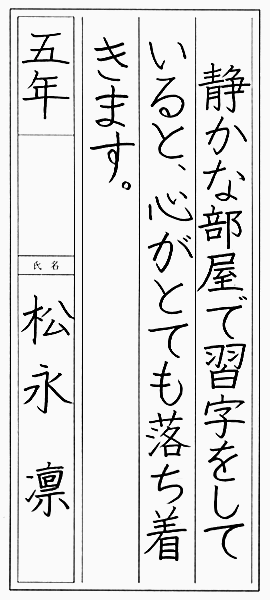 静かな部屋で習字をして
いると、心がとても落ち着
きます。
五年
氏名
松永 凛